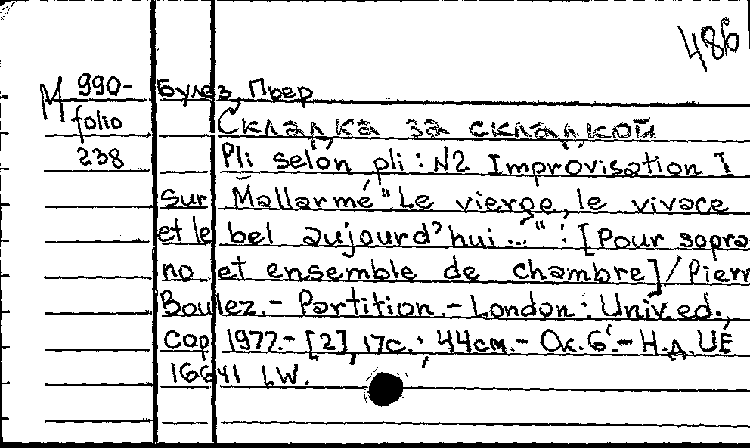 486
М 990- Булез, Пьер
folio Складка за складкой
238 Pli selon pli : N2 Improvisation I
sur Mallarmé "Le vierge, le vivace
et le bel aujourd'hui..." : [Pour sopra
no et ensemble de chambre] / Pierr
Boulez. - Partition. - London : Univ. ed.,
cop. 1977. - [2], 17 с. ; 44 см. - Ок. 6'. - Н.д. UE
16641 LW.